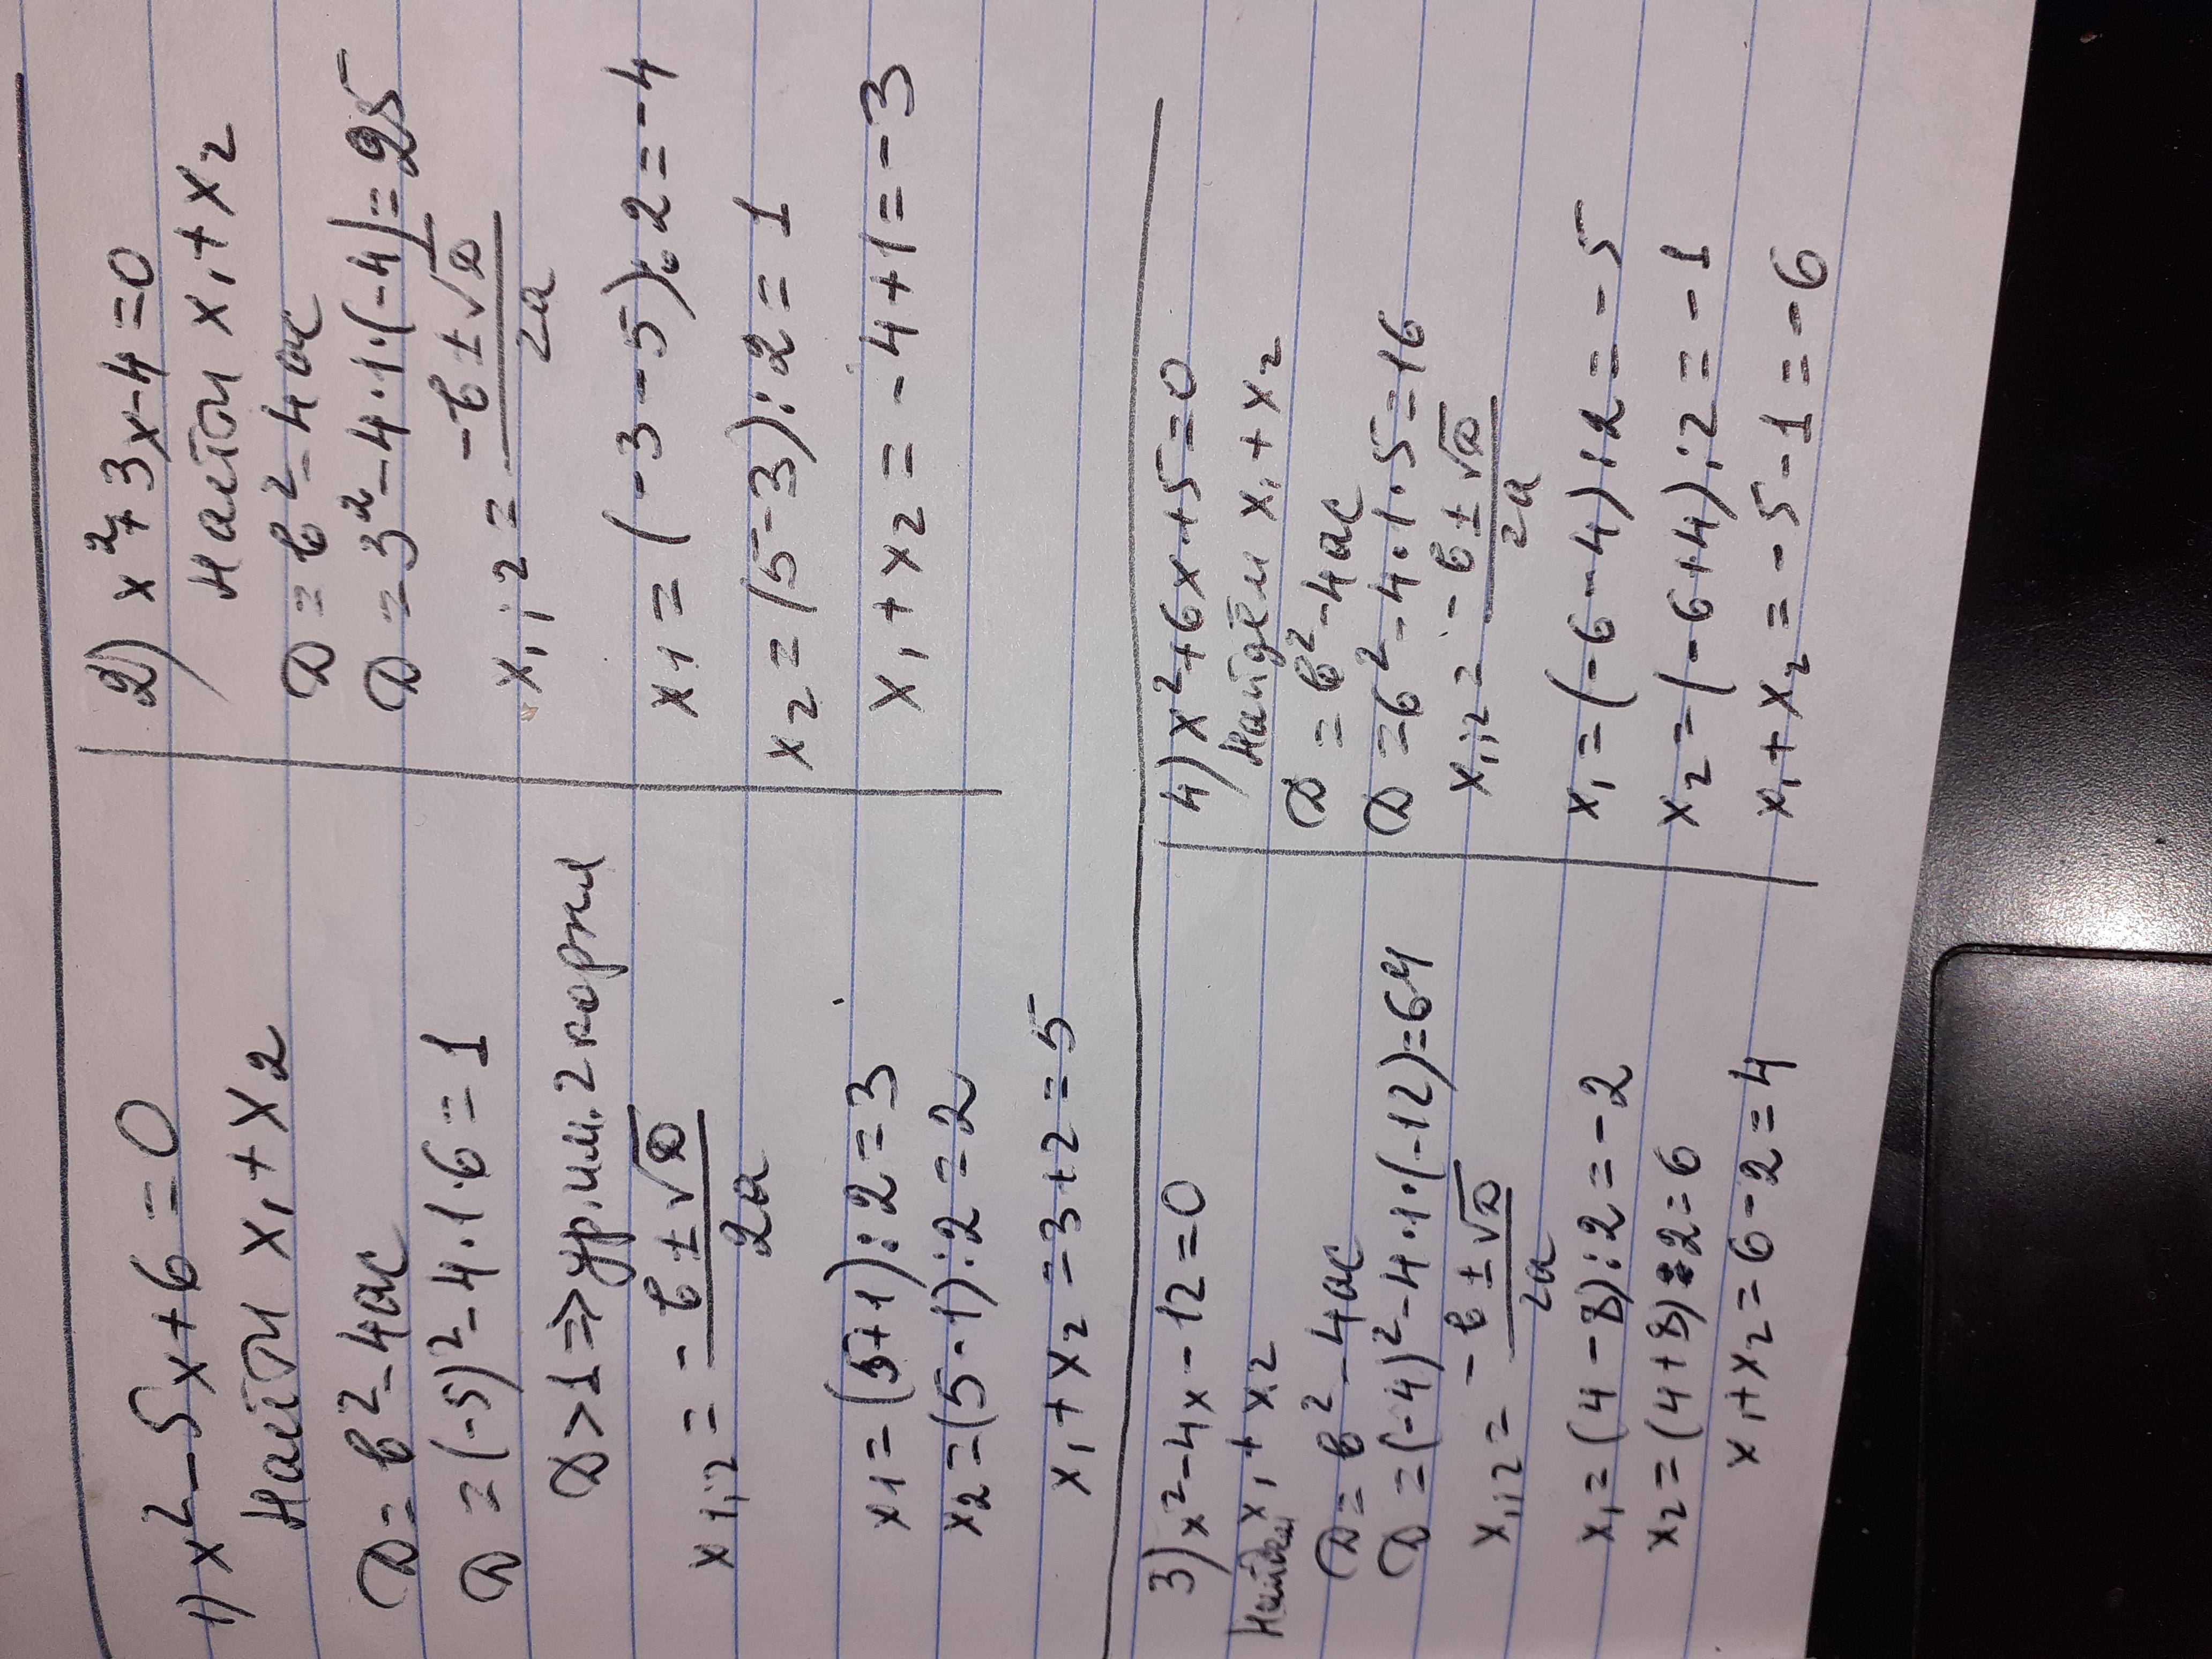 1) x² - 5x + 6 = 0
Найти x₁ + x₂
D = b² - 4ac
D = (-5)² - 4·1·6 = 1
D > 1 => ур. им. 2 корня
x₁;₂ = (-b ± √D) / 2a
x₁ = (5+1) : 2 = 3
x₂ = (5-1) : 2 = 2
x₁ + x₂ = 3 + 2 = 5
2) x² + 3x - 4 = 0
Найти x₁ + x₂
D = b² - 4ac
D = 3² - 4·1·(-4) = 25
x₁;₂ = (-b ± √D) / 2a
x₁ = (-3 - 5) : 2 = -4
x₂ = (5 - 3) : 2 = 1
x₁ + x₂ = -4 + 1 = -3
3) x² - 4x - 12 = 0
Найдем x₁ + x₂
D = b² - 4ac
D = (-4)² - 4·1·(-12) = 64
x₁;₂ = (-b ± √D) / 2a
x₁ = (4 - 8) : 2 = -2
x₂ = (4 + 8) : 2 = 6
x₁ + x₂ = 6 - 2 = 4
4) x² + 6x + 5 = 0
Найдём x₁ + x₂
D = b² - 4ac
D = 6² - 4·1·5 = 16
x₁;₂ = (-b ± √D) / 2a
x₁ = (-6 - 4) : 2 = -5
x₂ = (-6 + 4) : 2 = -1
x₁ + x₂ = -5 - 1 = -6